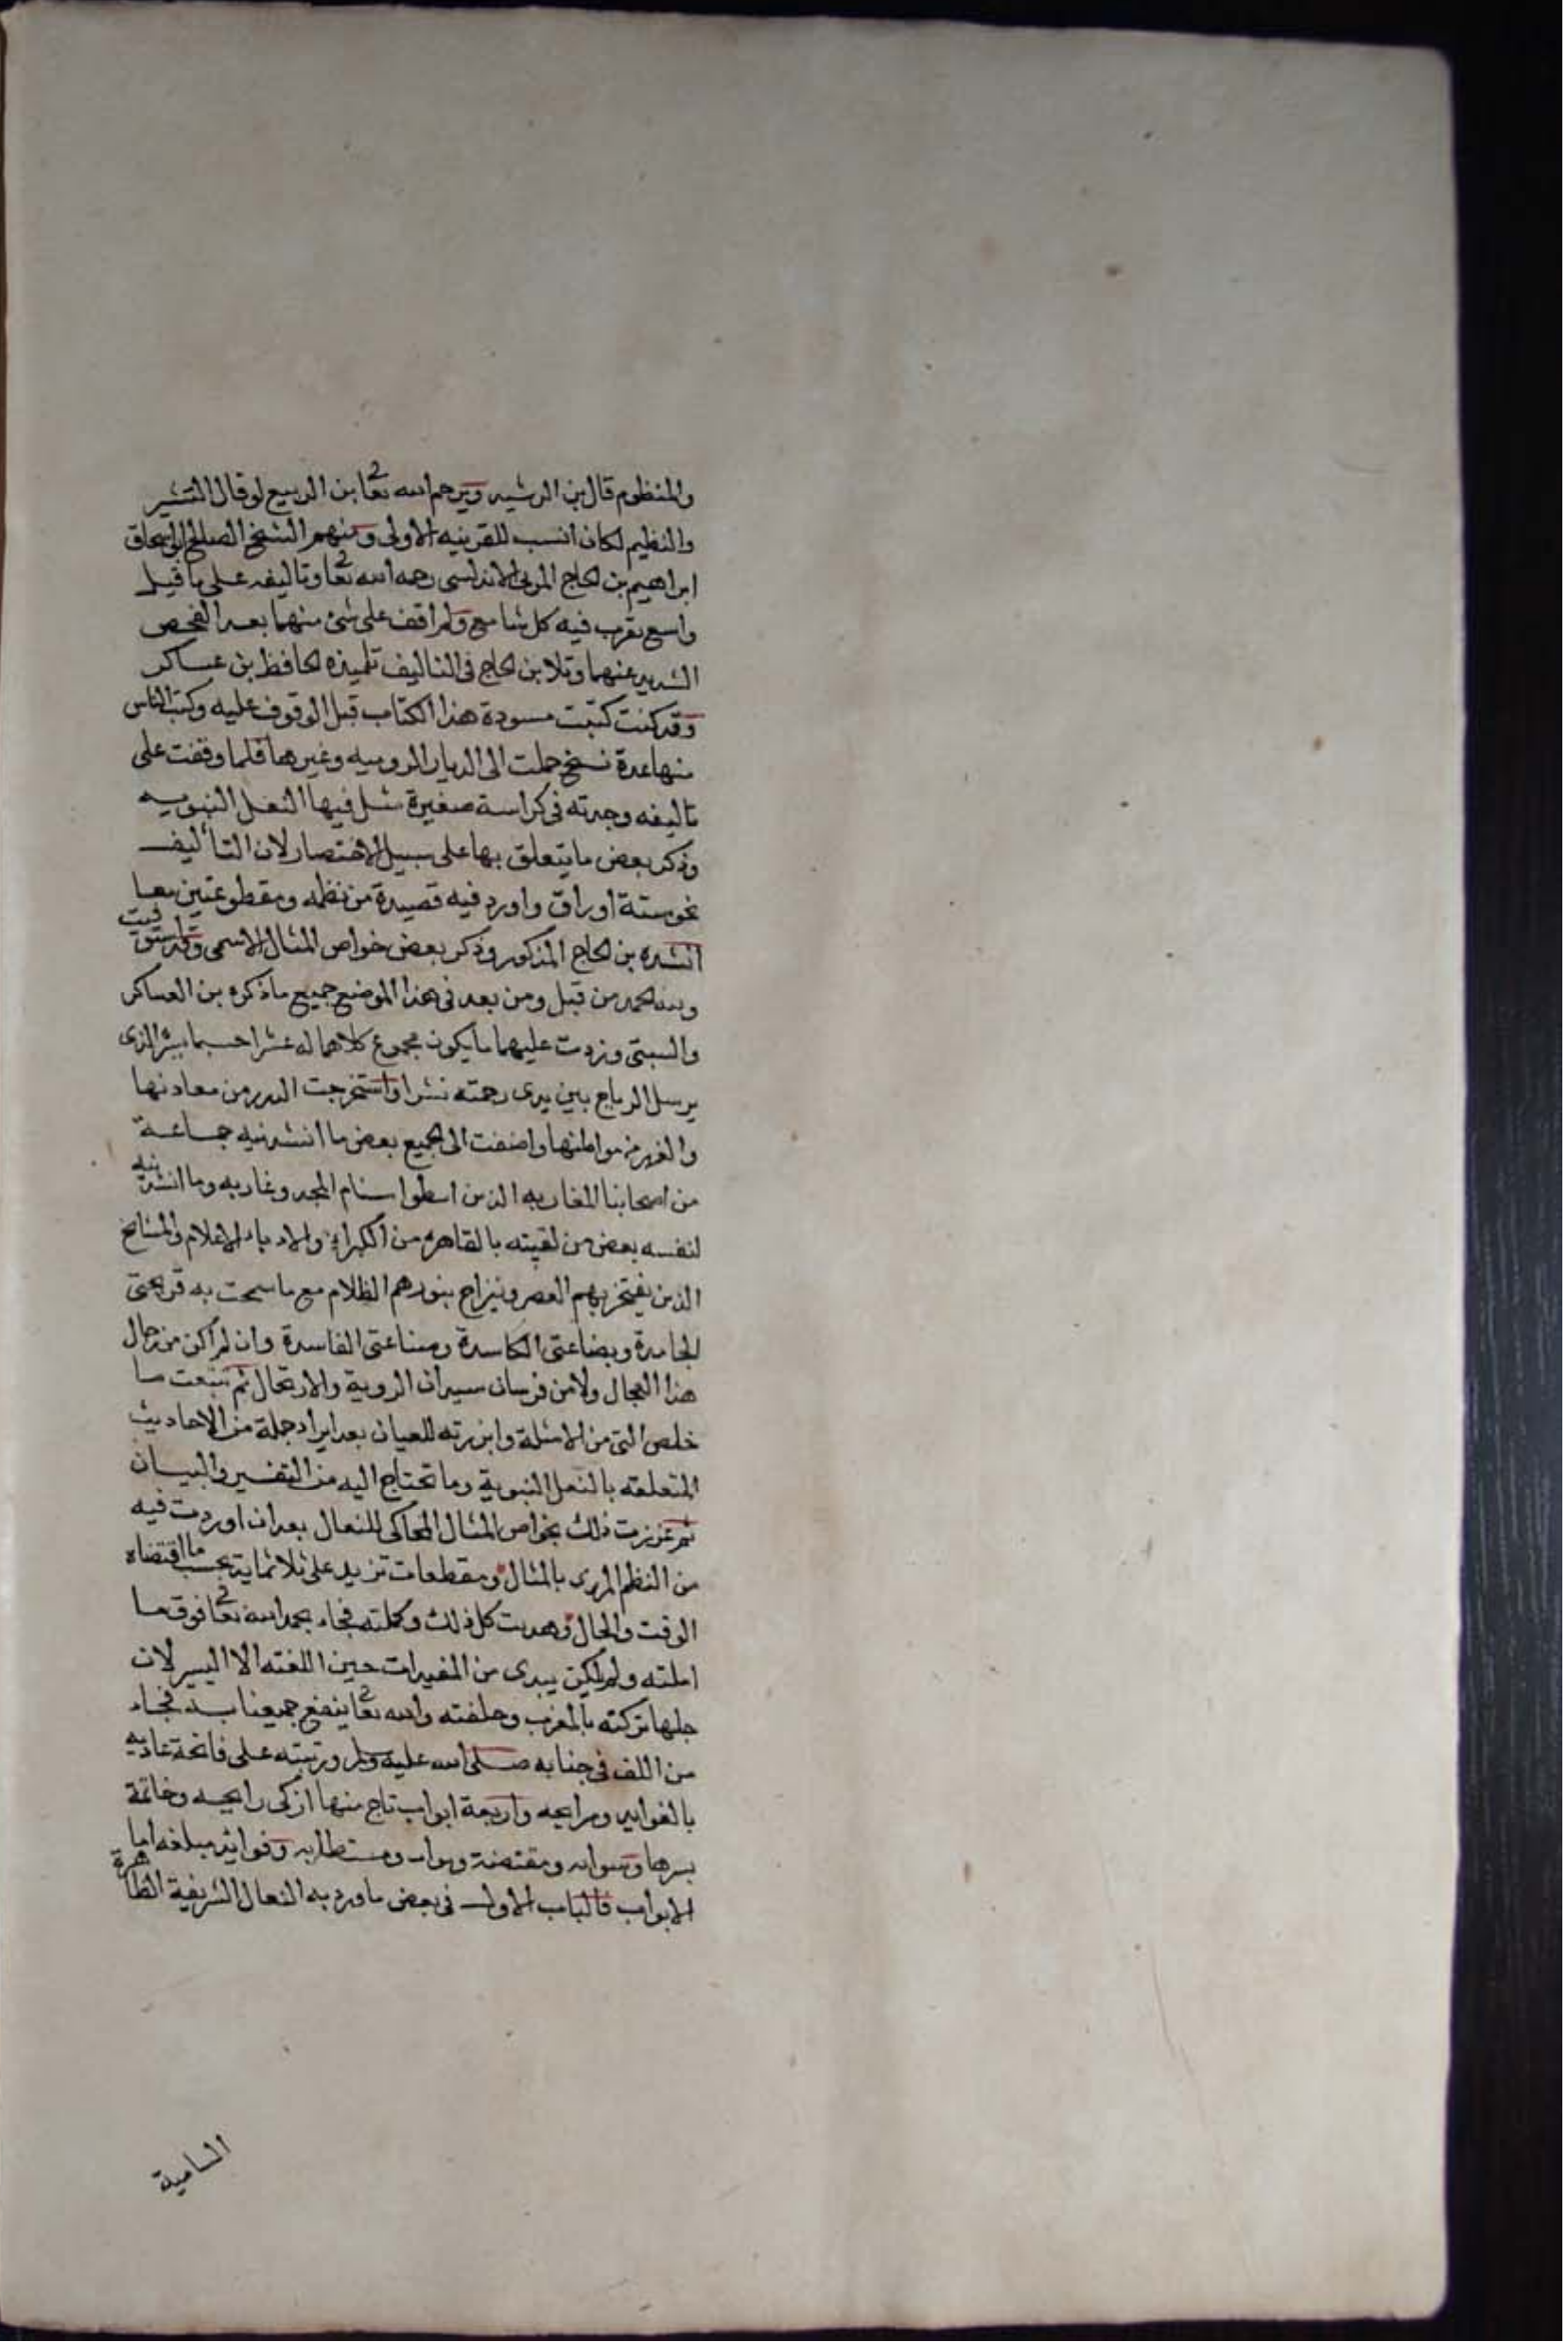 والمنظوم قال بن الرشيد ويرحم الله تعا بن الربيع لو قال النثير
والنظيم لكان انسب للقرينه الاولى ومنهم الشيخ الصالح ابو اسحاق
ابراهيم بن الحاج المربي الاندلسي رحمه الله تعا وتاليفه على ما قيل
واسع يقرب فيه كل شاسع ولم اقف على شئ منهما بعد الفحص
الشديد عنهما وتلا بن الحاج في التاليف تلميذه الحافظ بن عساكر
وقد كنت كتبت مسودة هذا الكتاب قبل الوقوف عليه وكتب الناس
منها عدة نسخ حملت الى الديار الروميه وغيرها فلما وقفت على
تاليفه وجدته في كراسة صغيرة مثل فيها النعل النبويه
وذكر بعض ما يتعلق بها على سبيل الاختصار لان التأليف
نحو ستة اوراق واورد فيه قصيدة من نظمه ومقطوعتين معا
انشده بن الحاج المذكور وذكر بعض خواص المثال الاسمى وقد استوفيت
ولله الحمد من قبل ومن بعد في هذا الموضع جميع ما ذكره بن العساكر
والسبتي وزدت عليهما ما يكون مجموع كلاهما له عشرا حسبما يسر الذى
يرسل الرياح بين يدى رحمته نشرا واستخرجت الدرر من معادنها
والغرر من مواطنها واضفت الى الجميع بعض ما انشدنيه جماعة
من اصحابنا المغاربه الذين اسطوا سنام المجد وغاربه وما انشدنيه
لنفسه بعض من لقيته بالقاهره من الكبراء والادباء الاعلام والمشايخ
الذين يفتخر بهم العصر ويزاح بنورهم الظلام مع ما سمحت به قريحتي
الجامدة وبضاعتي الكاسدة وصناعتي الفاسدة وان لم اكن من رجال
هذا المجال ولا من فرسان ميدان الروية والارتجال ثم تتبعت ما
خلص الي من الامثلة وابرزته للعيان بعد ايراد جملة من الاحاديث
المتعلقه بالنعل النبوية وما تحتاج اليه من التفسير والبيان
ثم عززت ذلك بخواص المثال المحاكى للنعال بعد ان اوردت فيه
من النظم المزرى بالمثال ومقطعات تزيد على ثلاثماية بحسب ما اقتضاه
الوقت والحال وهديت كل ذلك وكملته فجاء بحمد الله تعا فوق ما
املته ولم يكن بيدى من المفيدات حين الفته الا اليسير لان
جلها تركته بالمغرب وخلفته والله تعا ينفع جميعنا به فجاء
من اللف في جنابه صلى الله عليه وسلم ورتبته على فاتحة غاديه
بالفوايد ورايحه واربعة ابواب تاج منها ازكى رايحه وخاتمة
يسرها وسوابه ومقتضبة وبواب ومستطابه وفوائد مبلغه اما
الابواب فالباب الاول في بعض ما ورد به النعال الشريفة الطاهرة
السامية